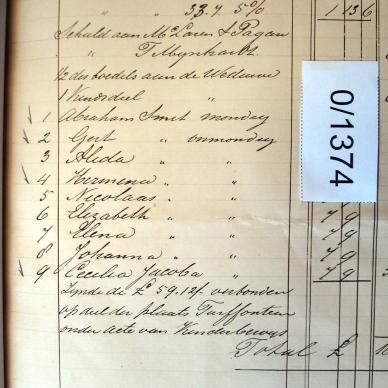 " " 33.7. 5% 1 13 6
Schuld aan McLaren & Pagan
" T Mynhardt.
1/2 des boedels aan de Weduwe
1 Kindsdeel "
1 Abraham Smit mondig
2 Gert " onmondig
3 Alida " "
4 Hermena " "
5 Nicolaas " "
6 Elizabeth " " 79
7 Elena " " 79
8 Johanna " " 79
9 Cecilia Jacoba " 79
Zynde de £ 59.12/- verbonden
op deel der plaats Turffontein
onder acte van Kinderbewys
Total £
0/1374